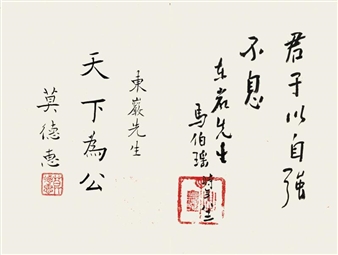 君子以自强
不息
东岩先生
馬伯瑶
東巖先生
天下為公
莫德惠